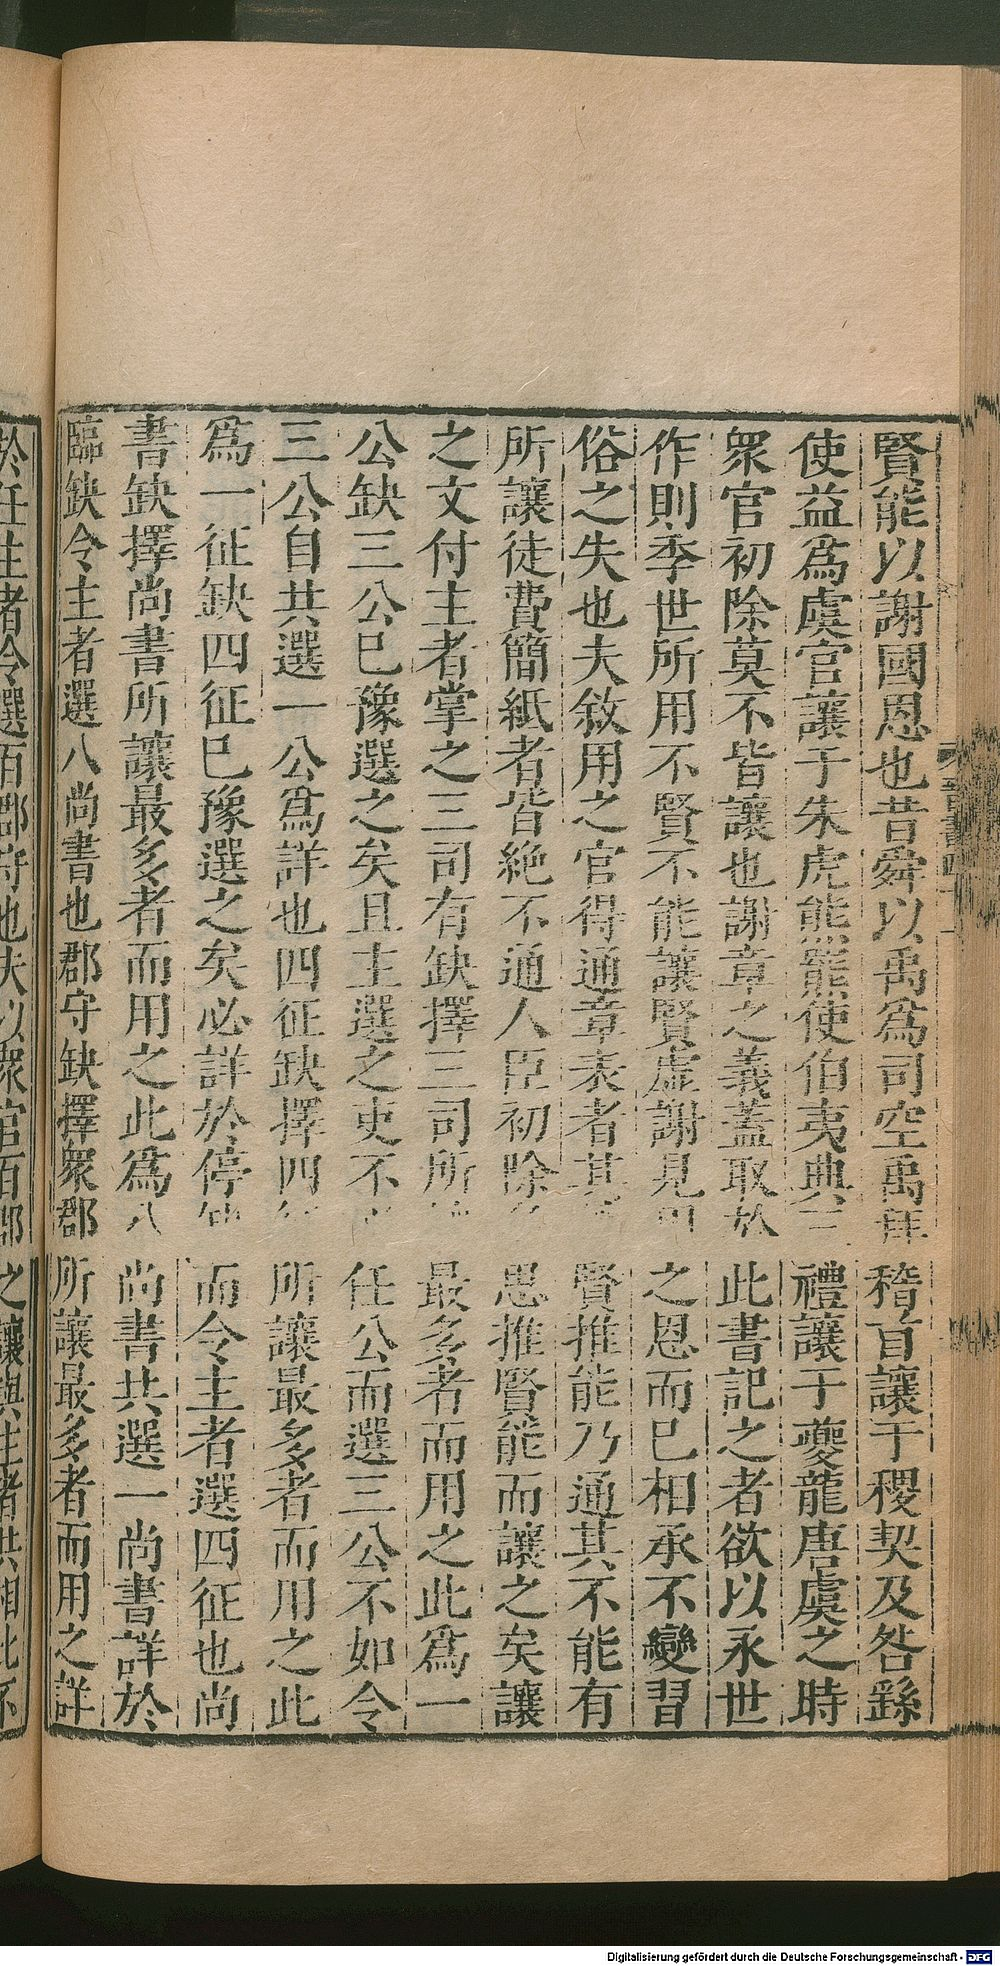 賢能以謝國恩也昔舜以禹爲司空禹拜稽首讓于稷契及咎繇
使益爲虞官讓于朱虎熊羆使伯夷典三禮讓于夔龍唐虞之時
衆官初除莫不皆讓也謝章之義蓋取於此書記之者欲以永世
作則季世所用不賢不能讓賢虛謝見用之恩而已相承不變習
俗之失也夫敘用之官得通章表者其讓賢推能乃通其不能有
所讓徒費簡紙者皆絶不通人臣初除各思推賢能而讓之矣讓
之文付主者掌之三司有缺擇三司所讓最多者而用之此爲一
公缺三公已豫選之矣且主選之吏不必任公而選三公不如令
三公自共選一公爲詳也四征缺擇四征所讓最多者而用之此
爲一征缺四征已豫選之矣必詳於停缺而令主者選四征也尚
書缺擇尚書所讓最多者而用之此爲八尚書共選一尚書詳於
臨缺令主者選八尚書也郡守缺擇衆郡所讓最多者而用之詳
於任主者令選百郡守也夫以衆官百郡之讓與主者共相比不